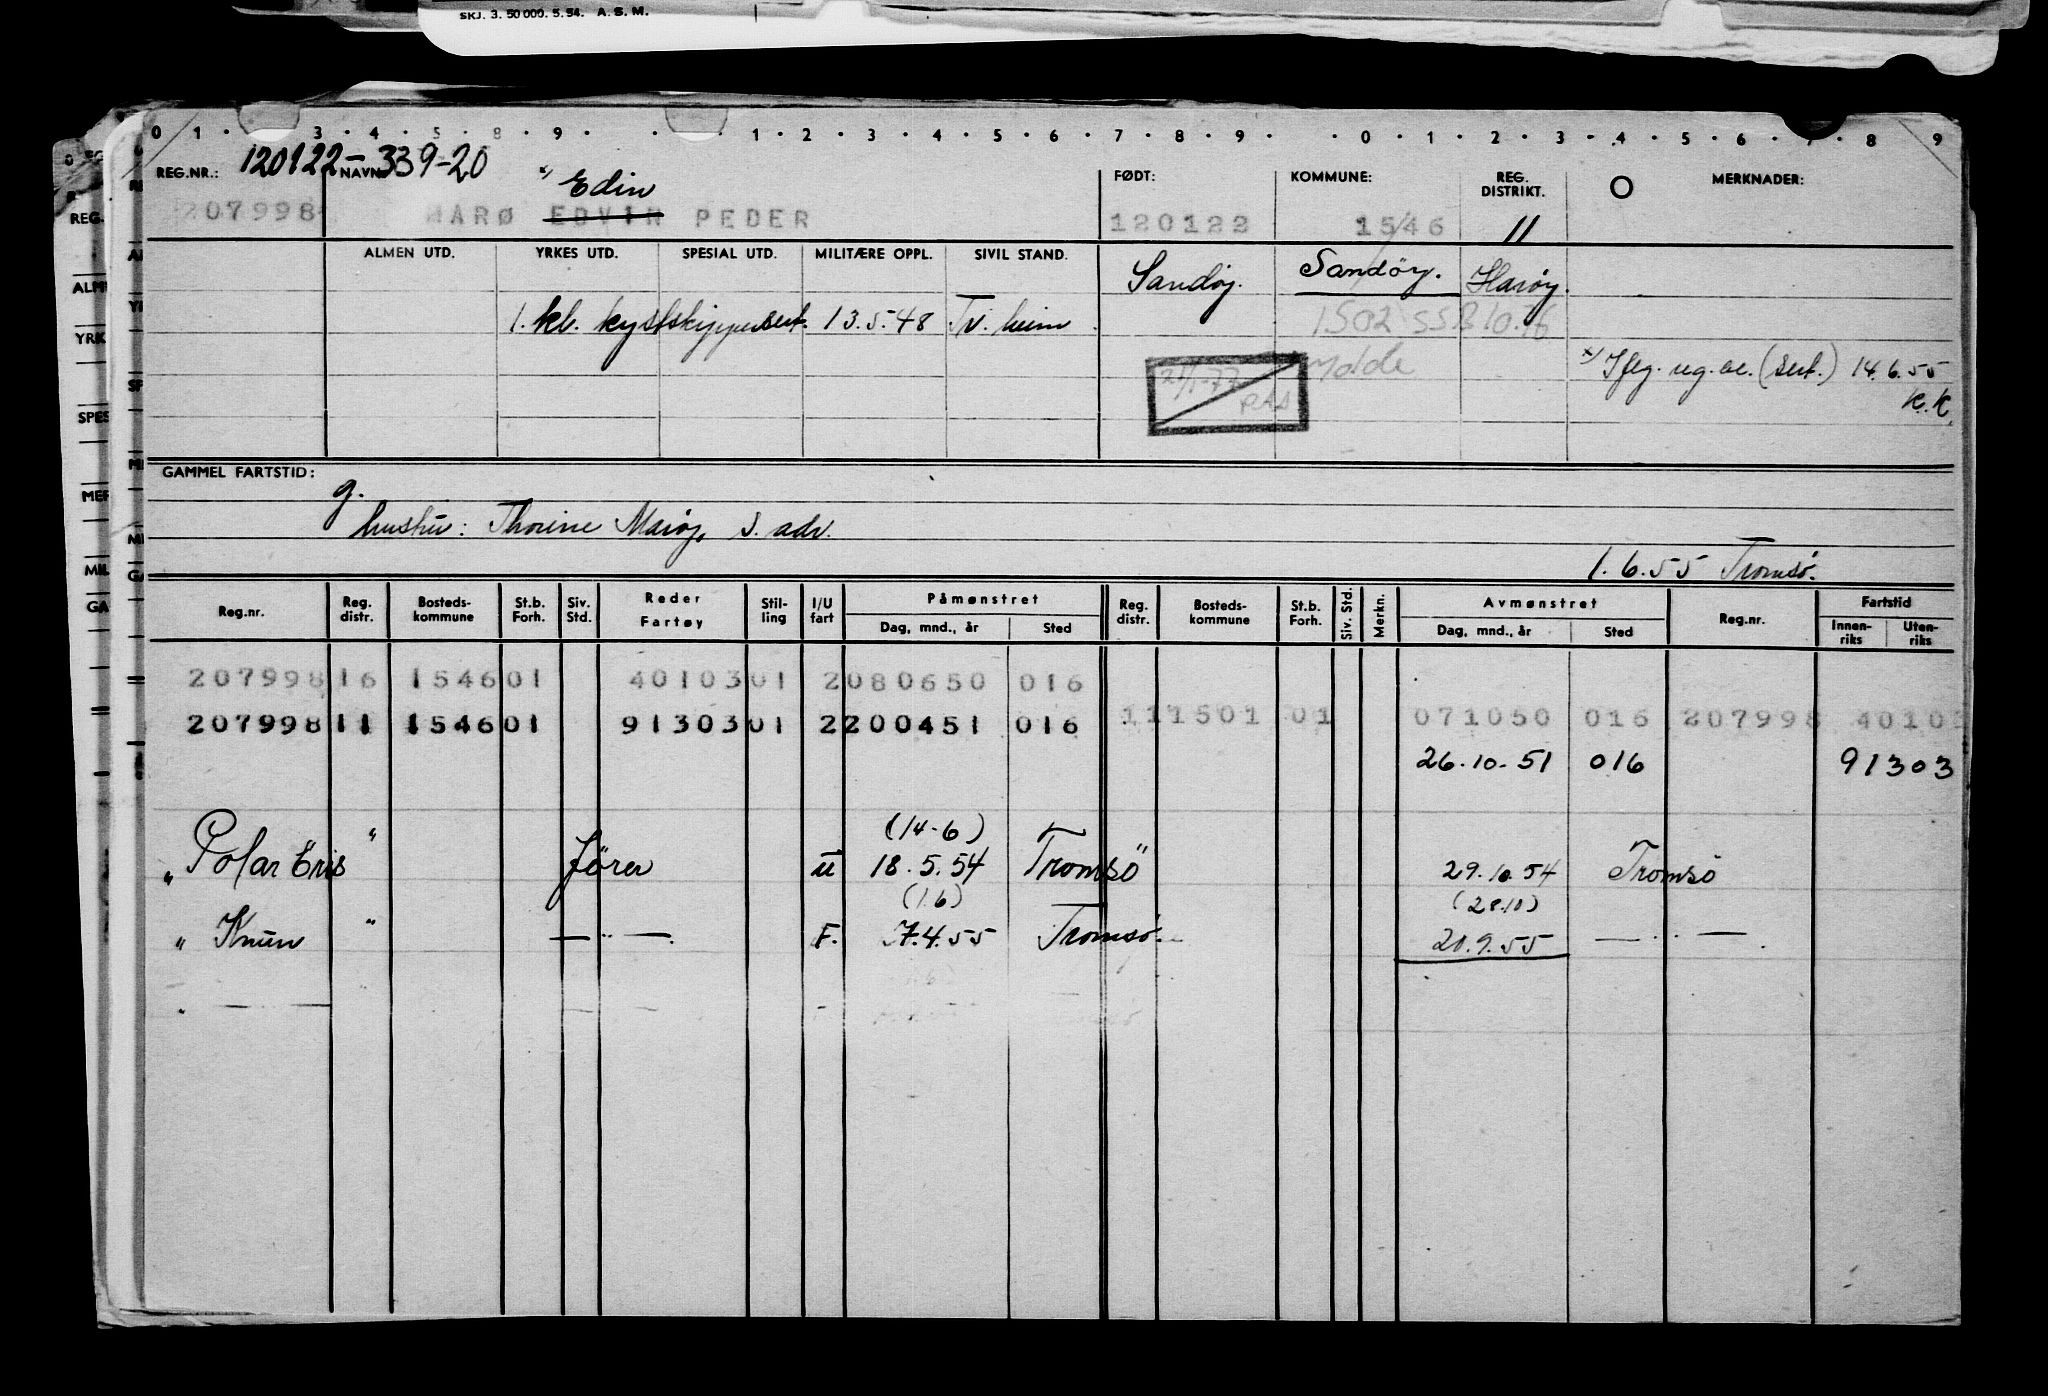 SKJ. 3. 50 000. 5. 54. A. S. M.
0 1 · 3 · 4 · 5 · 8 · 9 · · 1 · 2 · 3 · 4 · 5 · 6 · 7 · 8 · 9 · · 0 · 1 · 2 · 3 · 4 · 5 · 6 · 7 · 8 · 9
REG.NR.: 120122-339-20 NAVN: x) Edin FØDT: KOMMUNE: REG. DISTRIKT. O MERKNADER:
207998 MARØ EDVIN PEDER 120122 15/46 11
ALMEN UTD. YRKES UTD. SPESIAL UTD. MILITÆRE OPPL. SIVIL STAND. Sandøy. Sandöy. Harøy.
1. kl. kystskippersert. 13.5.48 Tv. heim 1502 SSB 10.76
21/1-77 Molde x) Iflg. reg. av. (sert.) 14.6.55
RAA K.K.
GAMMEL FARTSTID:
g.
hustru: Thorine Marøy, s. adr.
1.6.55 Tromsø.
Reg.nr. Reg. distr. Bosteds-kommune St.b. Forh. Siv. Std. Reder Fartøy Stil-ling I/U fart Påmønstret Dag, mnd., år Sted Reg. distr. Bosteds-kommune St.b. Forh. Siv. Std. Merkn. Avmønstret Dag, mnd., år Sted Reg.nr. Fartstid Innen-riks Uten-riks
207998 16 1546 01 40103 01 2 080650 016
207998 11 1546 01 91303 01 2 200451 016 11 1501 01 071050 016 207998 40103
26.10.51 016 91303
(14-6)
" Polar Eris " fører u 18.5.54 Tromsö 29.10.54 Tromsö
(1.6) (28.10)
" Knun " — " — F. 7.4.55 Tromsø. 20.9.55 — " —.
" —